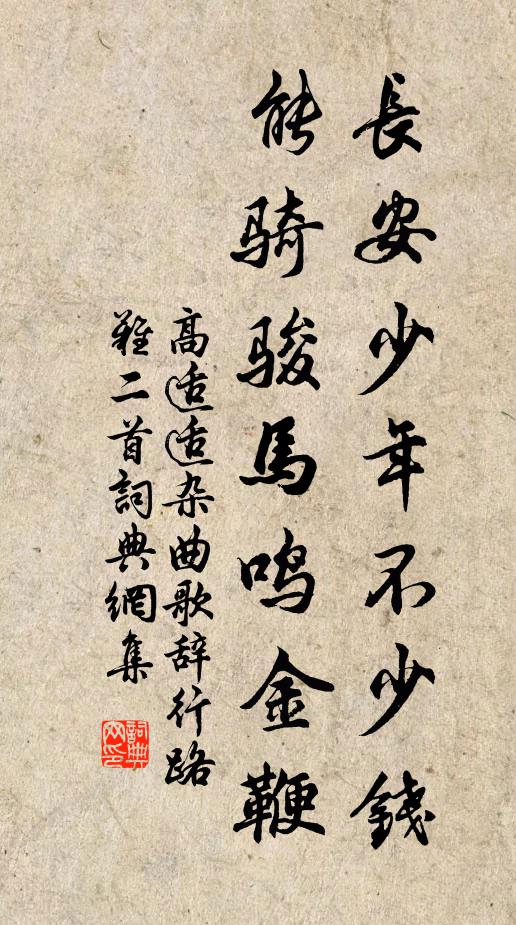 長安少年不少錢
能骑骏馬鸣金鞭
高适适杂曲歌辞行路
難二首詞典網集
詞典
网印